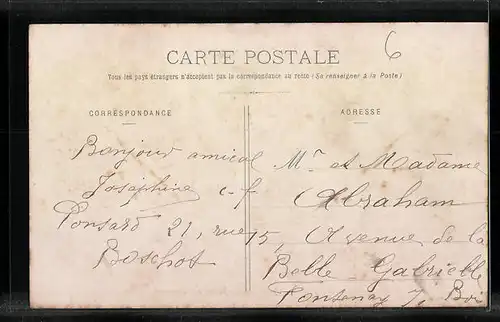 6
CARTE POSTALE
Tous les pays étrangers n'acceptent pas la correspondance au recto (Se renseigner à la Poste)
CORRESPONDANCE
Bonjour amical
Josephine
Ponsard 21, rue
Boschot
ADRESSE
Mr et Madame
Abraham
15, Avenue de la
Belle Gabrielle
Fontenay s/ Boi